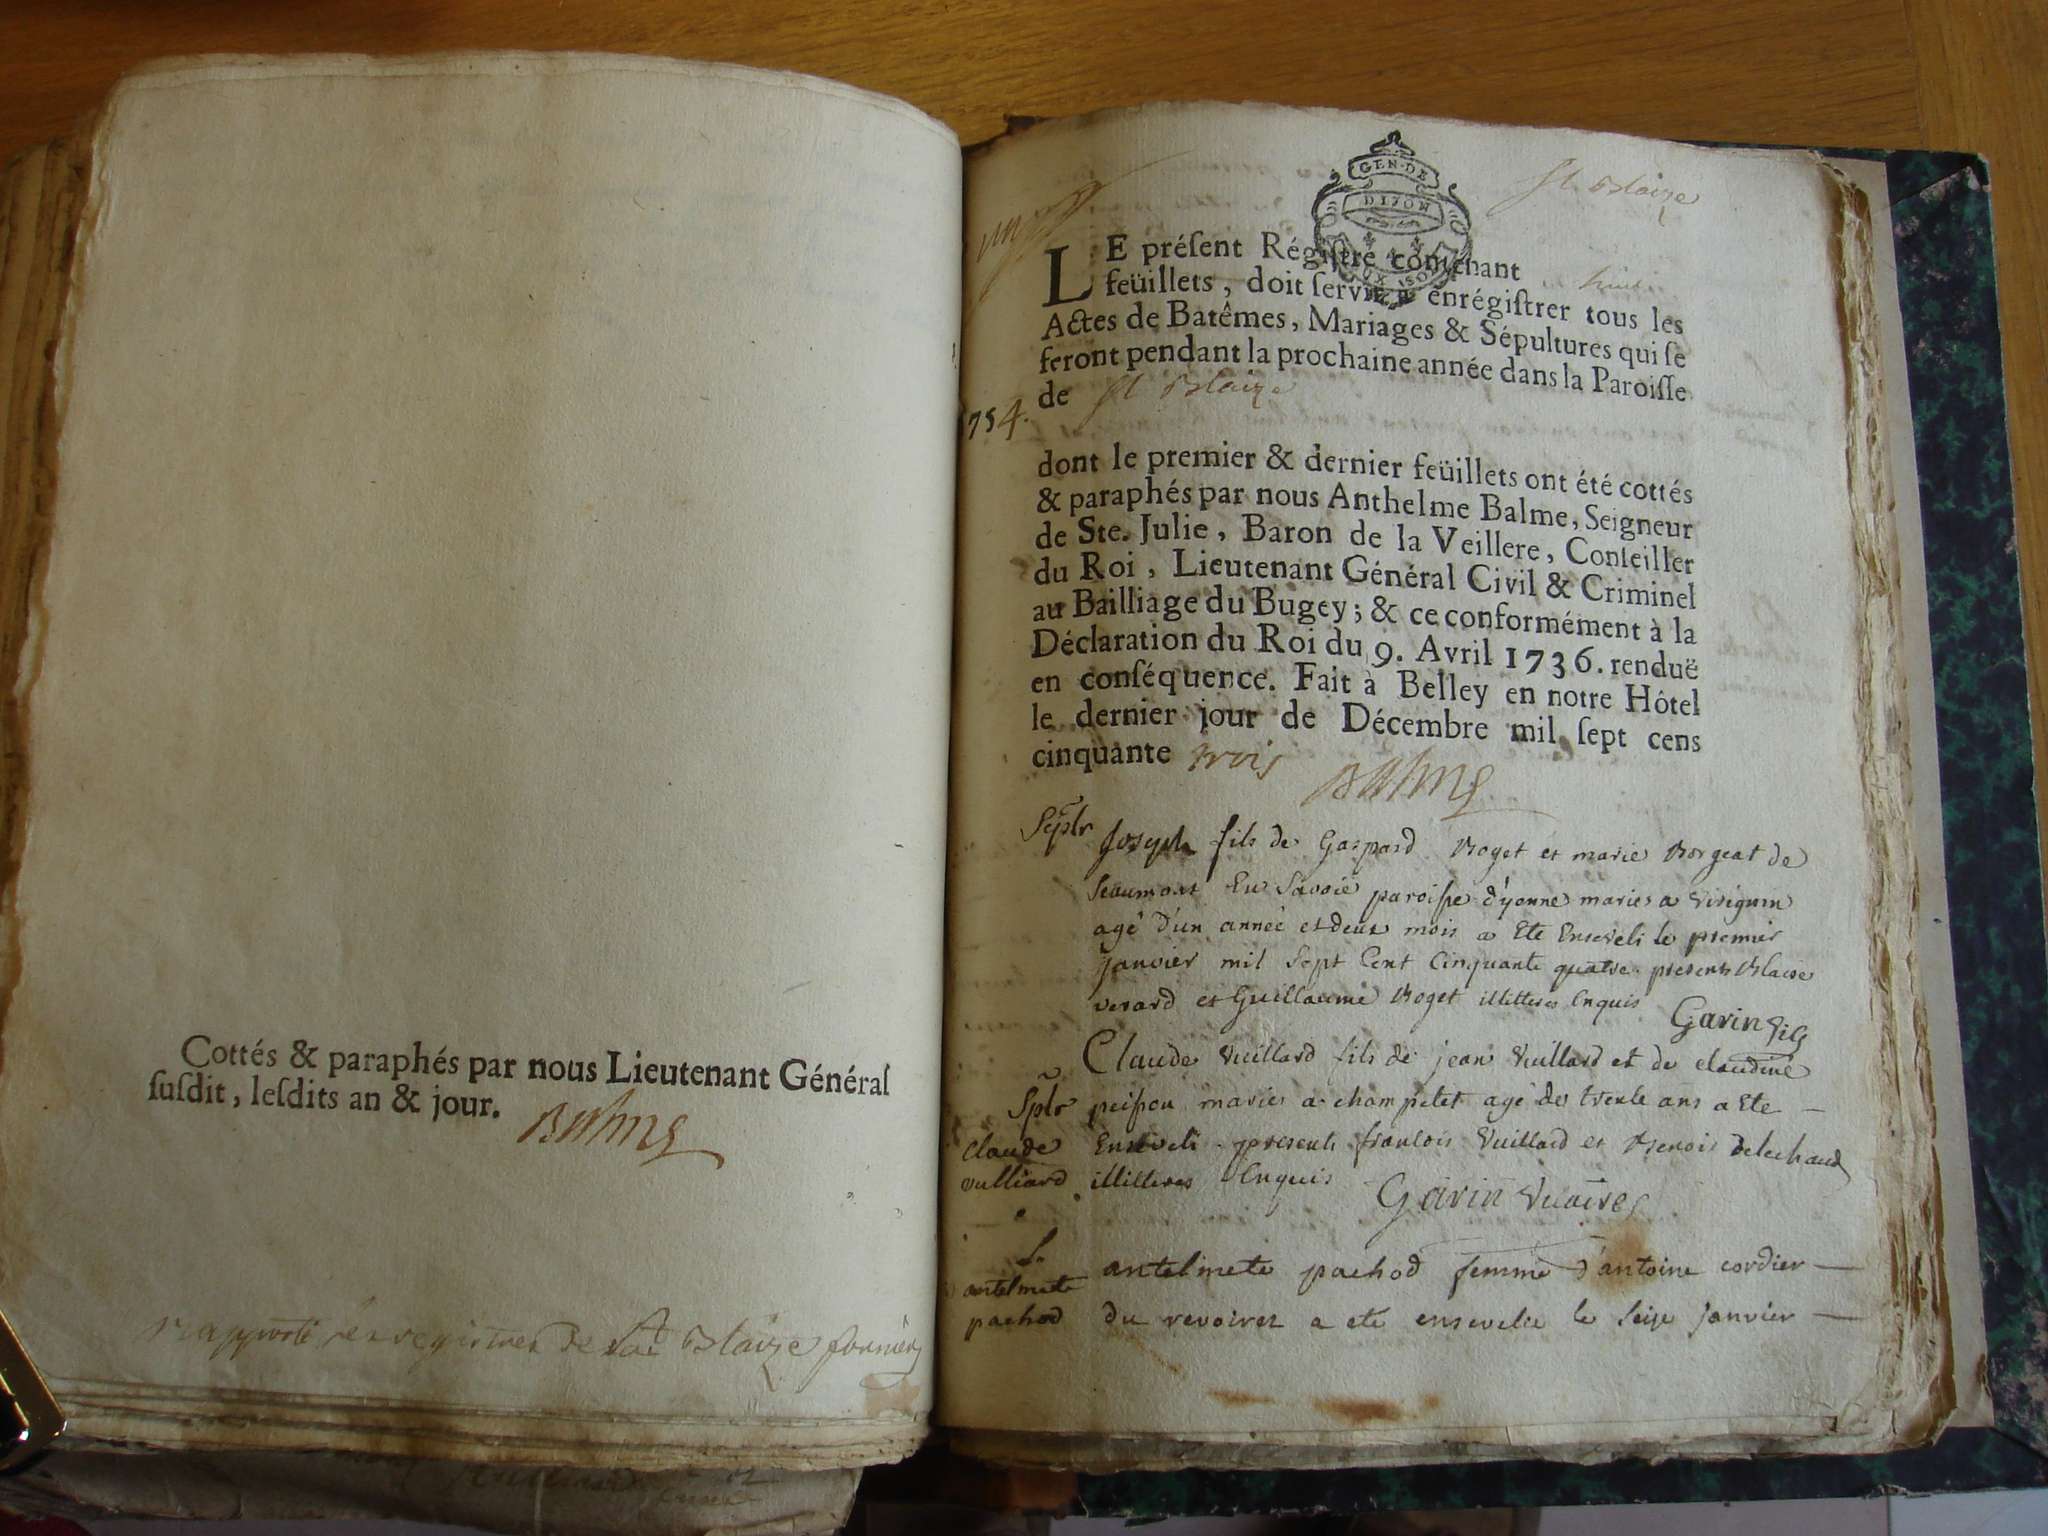 Cottés & paraphés par nous Lieutenant Général
ſuſdit, leſdits an & jour.
Balme
de St Blaize
GEN. DE
DIJON
St Blaize
LE préſent Régiſtre contenant
feüillets, doit ſervir à enrégiſtrer tous les
Actes de Batêmes, Mariages & Sépultures qui ſe
feront pendant la prochaine année dans la Paroiſſe
de St Blaize
754.
dont le premier & dernier feüillets ont été cottés
& paraphés par nous Anthelme Balme, Seigneur
de Ste. Julie, Baron de la Veillere, Conſeiller
du Roi, Lieutenant Général Civil & Criminel
au Bailliage du Bugey; & ce conformément à la
Déclaration du Roi du 9. Avril 1736. renduë
en conſéquence. Fait à Belley en notre Hôtel
le dernier jour de Décembre mil ſept cens
cinquante trois
Balme
Sepltr
Joseph fils de Gaspard Roget et marie Borgeat de
En Savoie paroisse d'yenne maries a virignin
agé d'un année et deux mois a Ete Enseveli le premier
janvier mil Sept Cent Cinquante quatre presents Blaise
verard et Guillaume Roget illitteres Enquis
Garin
Claude Vuillard fils de jean Vuillard et de claudine
Spltr
peisson maries a champtel agé de trente ans a Ete
Claude
Enseveli presents francois Vuillard et Benoit delechaud
vulliard
illitteres Enquis
Garin Vicaire
antelmete
pachod
antelmete pachod femme d'antoine cordier
du revoiret a eté ensevelie le seize janvier